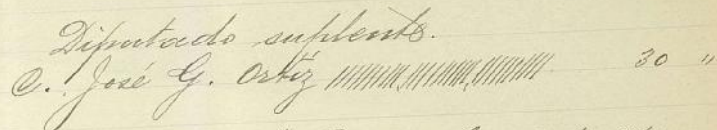 Diputado suplente.
C. José G. Ortiz 30 "